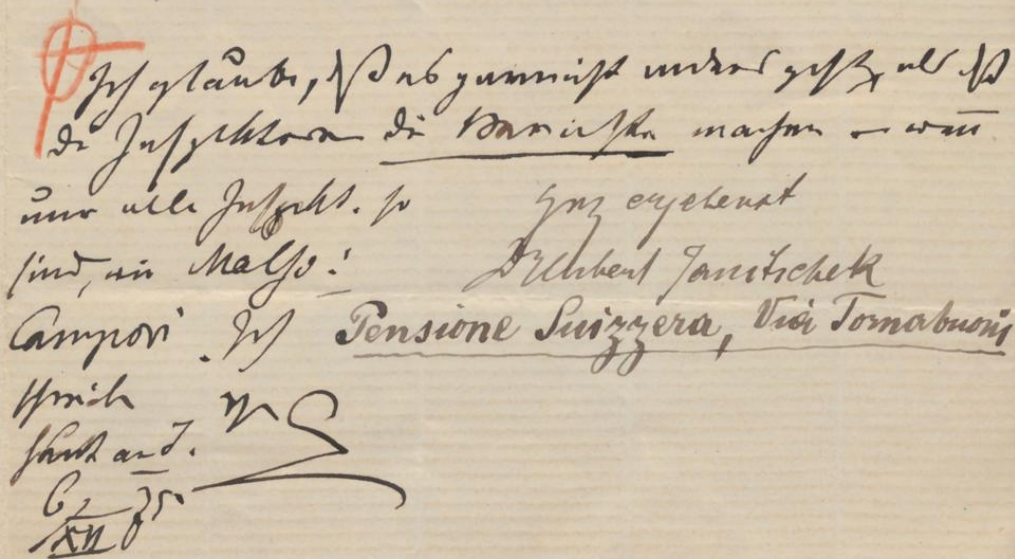 Ich glaube, daß es garnicht anders geht, als daß
die Inspektoren die Berichte machen u wenn
nur alle Inspekt. so
sind, wie Malso!
Campori. Ich
schreibe
heut an J.
6/XII 75.
ganz ergebenst
Dr Hubert Janitschek
Pensione Suizzera, Via Tornabuoni